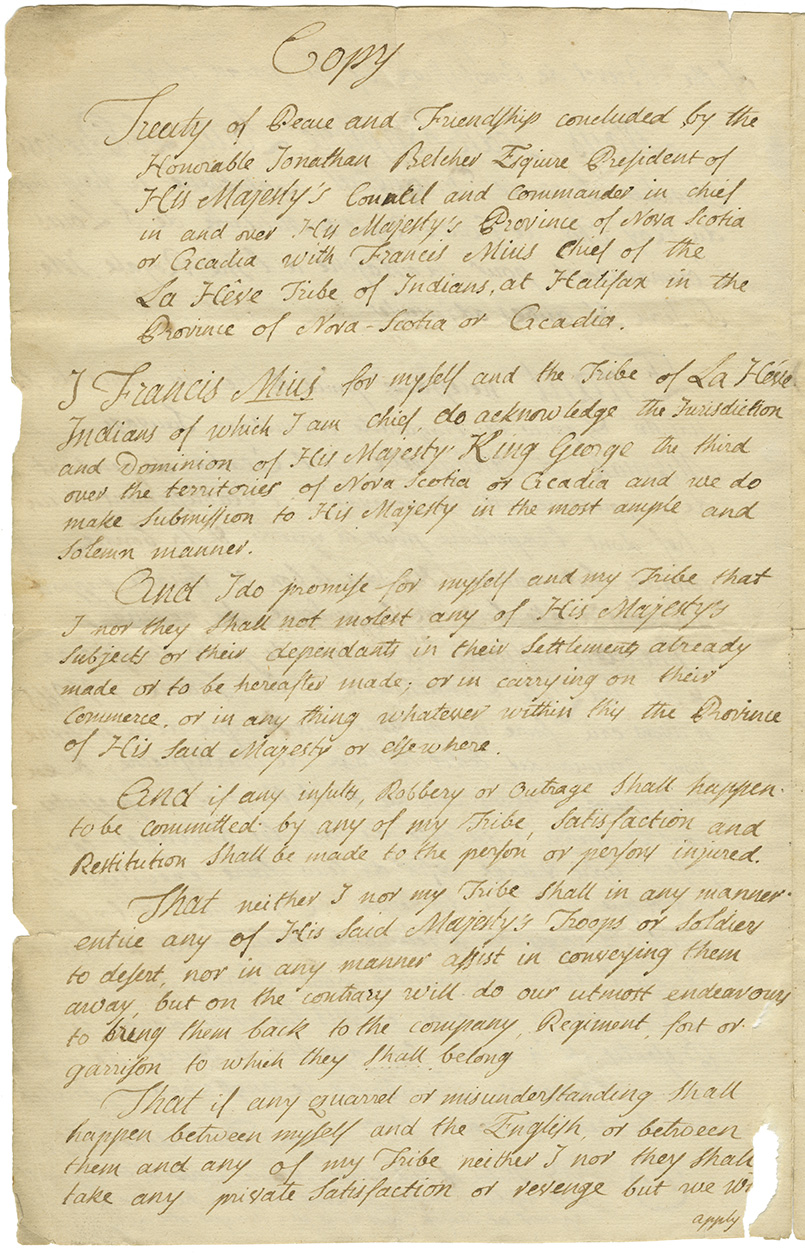 Copy
Treaty of Peace and Friendship concluded by the
Honorable Jonathan Belcher Esqiure President of
His Majesty's Council and Commander in chief
in and over His Majesty's Province of Nova Scotia
or Acadia with Francis Mius Chief of the
La Hêve Tribe of Indians, at Halifax in the
Province of Nova-Scotia or Acadia.
I Francis Mius for myself and the Tribe of La Hêve
Indians of which I am chief, do acknowledge the Jurisdiction
and Dominion of His Majesty King George the third
over the territories of Nova Scotia or Acadia and we do
make submission to His Majesty in the most ample and
solemn manner.
And I do promise for myself and my Tribe that
I nor they shall not molest any of His Majesty's
subjects or their dependants in their Settlements already
made or to be hereafter made; or in carrying on their
Commerce, or in any thing whatever within this the Province
of His said Majesty or elsewhere.
And if any insults, Robbery or Outrage shall happen
to be committed by any of my Tribe, satisfaction and
Restitution shall be made to the person or persons injured.
That neither I nor my Tribe shall in any manner
entice any of His said Majesty's Troops or soldiers
to desert, nor in any manner assist in conveying them
away, but on the contrary will do our utmost endeavours
to bring them back to the company, Regiment, fort or
garrison to which they shall belong
That if any quarrel or misunderstanding shall
happen between myself and the English, or between
them and any of my Tribe neither I nor they shall
take any private satisfaction or revenge but we
apply